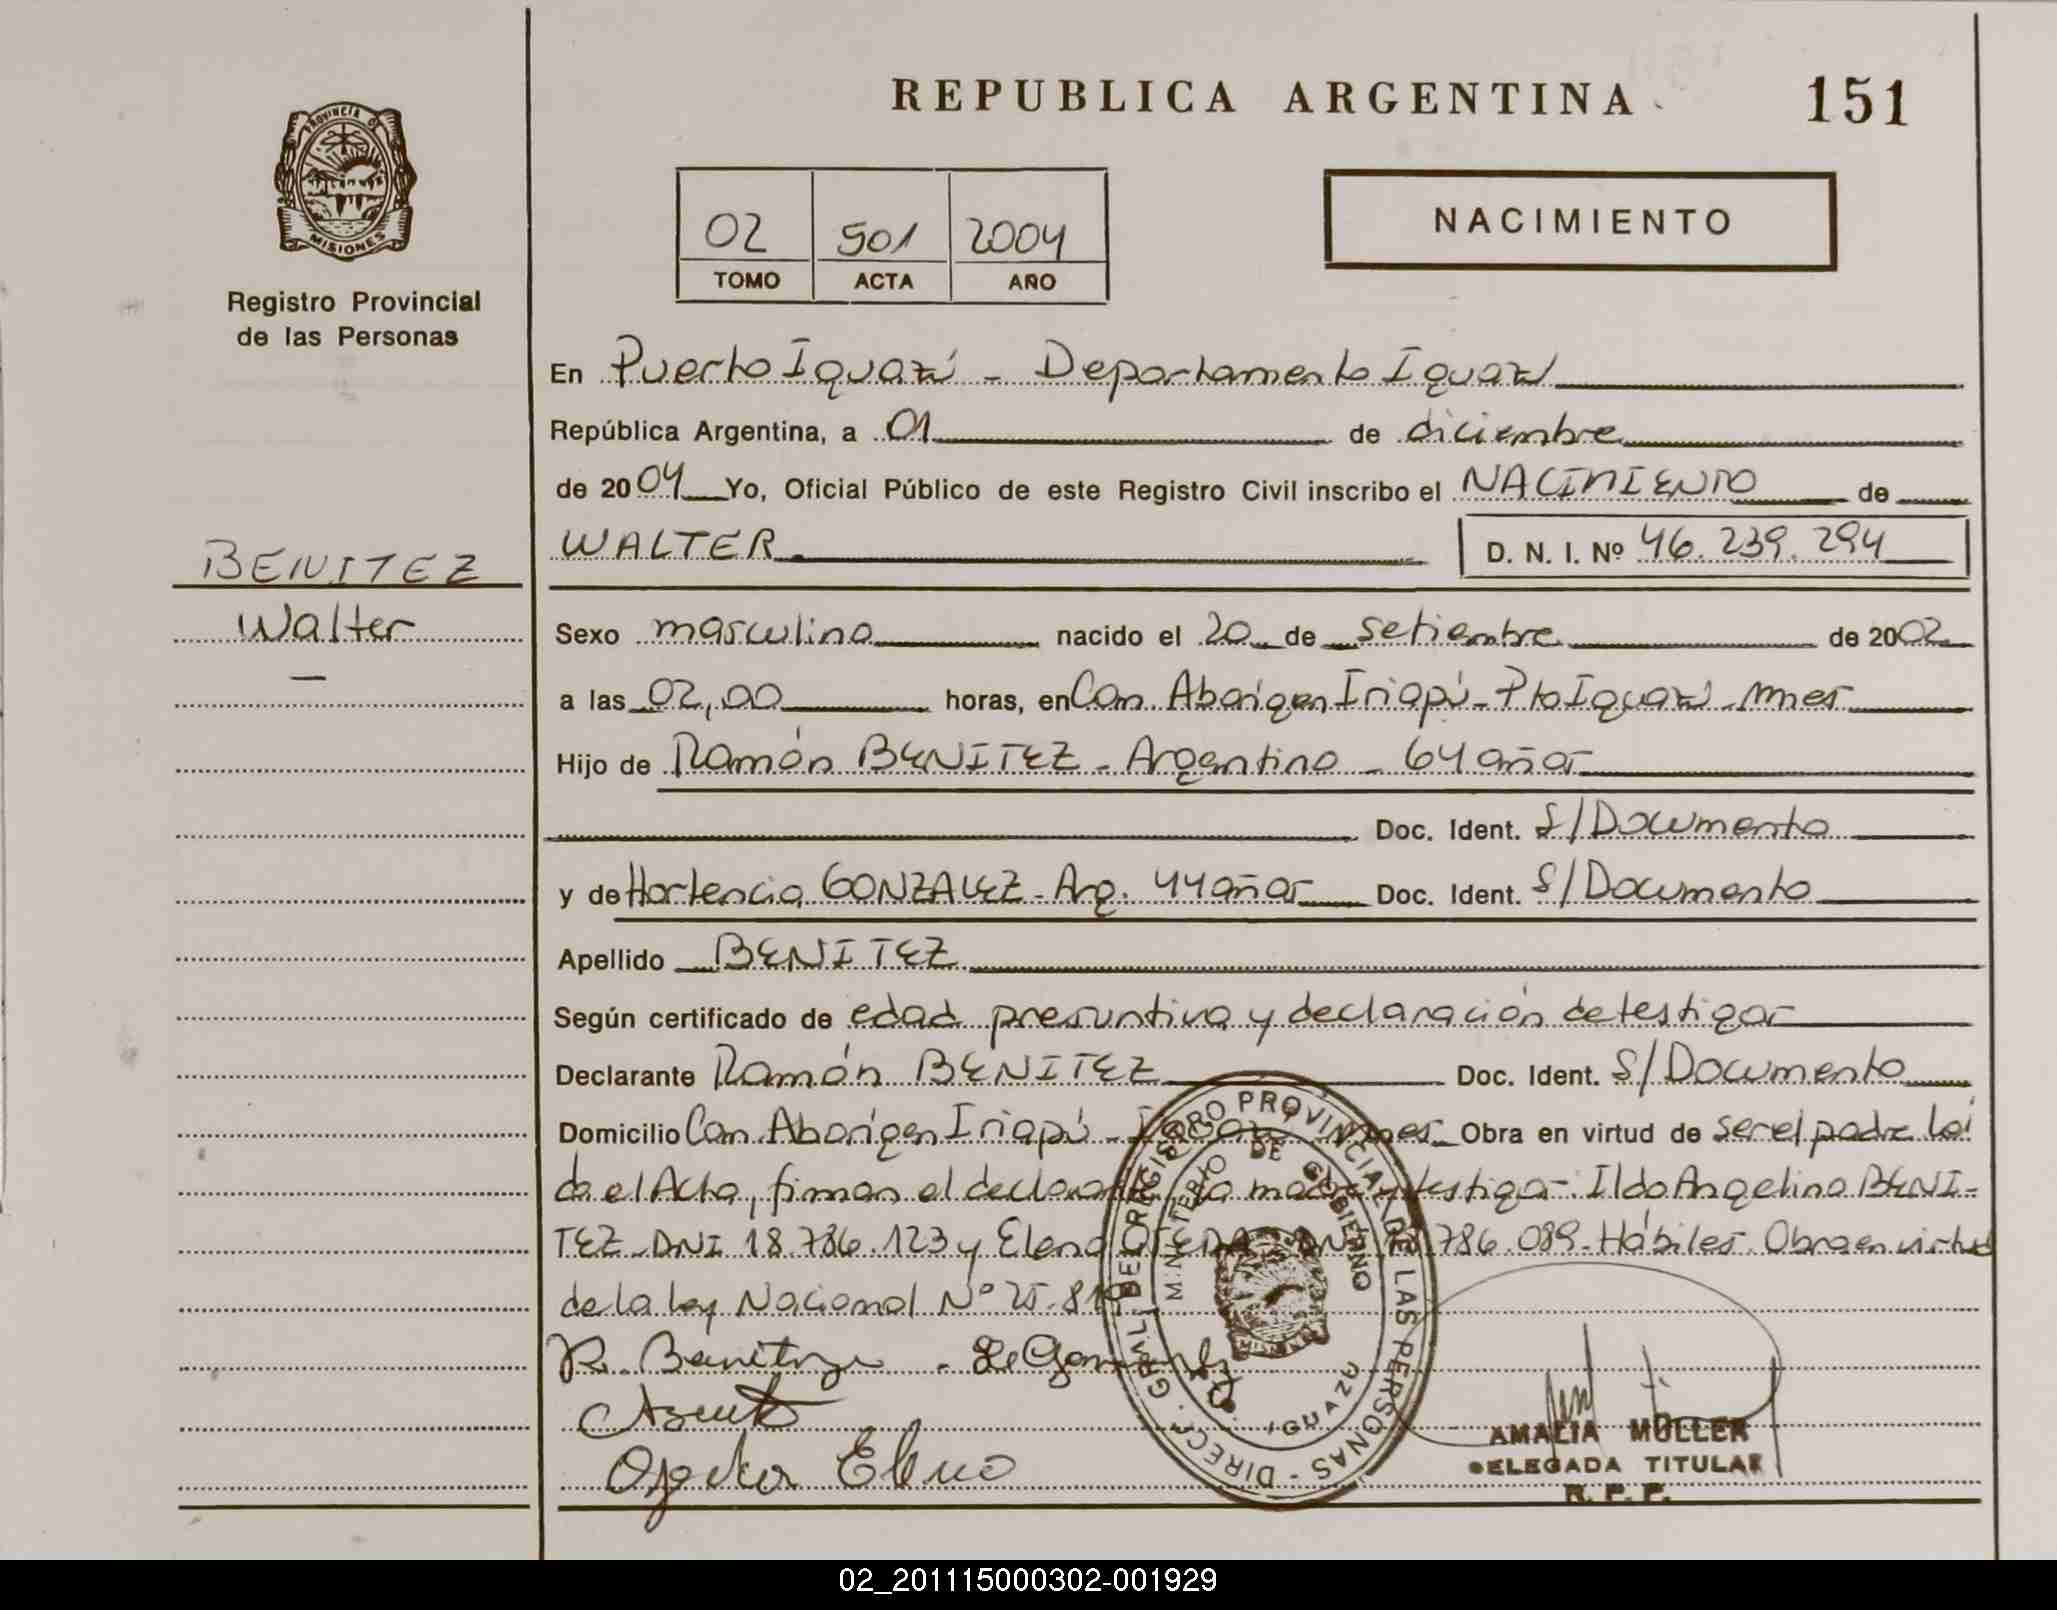 REPUBLICA ARGENTINA 151
PROVINCIA DE
MISIONES
Registro Provincial
de las Personas
02 501 2004
TOMO ACTA AÑO
NACIMIENTO
En Puerto Iguazú - Departamento Iguazú
República Argentina, a 01 de diciembre
de 2004 Yo, Oficial Público de este Registro Civil inscribo el NACIMIENTO de
WALTER D. N. I. Nº 46.239.294
BENITEZ
Walter
Sexo masculino nacido el 20 de setiembre de 2002
a las 02,00 horas, en Com Aborigen Iriapú - Pto Iguazú - Mnes
Hijo de Ramón BENITEZ - Argentino - 64 años
Doc. Ident. S/Documento
y de Hortencia GONZALEZ - Arg. 44 años Doc. Ident. S/Documento
Apellido BENITEZ
Según certificado de edad presuntiva y declaración de testigos
Declarante Ramón BENITEZ Doc. Ident. S/Documento
Domicilio Com Aborigen Iriapú - Mnes Obra en virtud de ser el padre Leí
da el Acta, firman el declarante, la madre y testigos: Ildo Angelino BENI-
TEZ - DNI 18.786.123 y Elena 786.089 - Hábiles. Obra en virtud
de la ley Nacional Nº 25.819
R. Benitez
Elena
DIRECC. GRAL. DEL REGISTRO PROVINCIAL DE LAS PERSONAS
MINISTERIO DE GOBIERNO
IGUAZU
AMALIA MULLER
DELEGADA TITULAR
R. P. P.
02_201115000302-001929